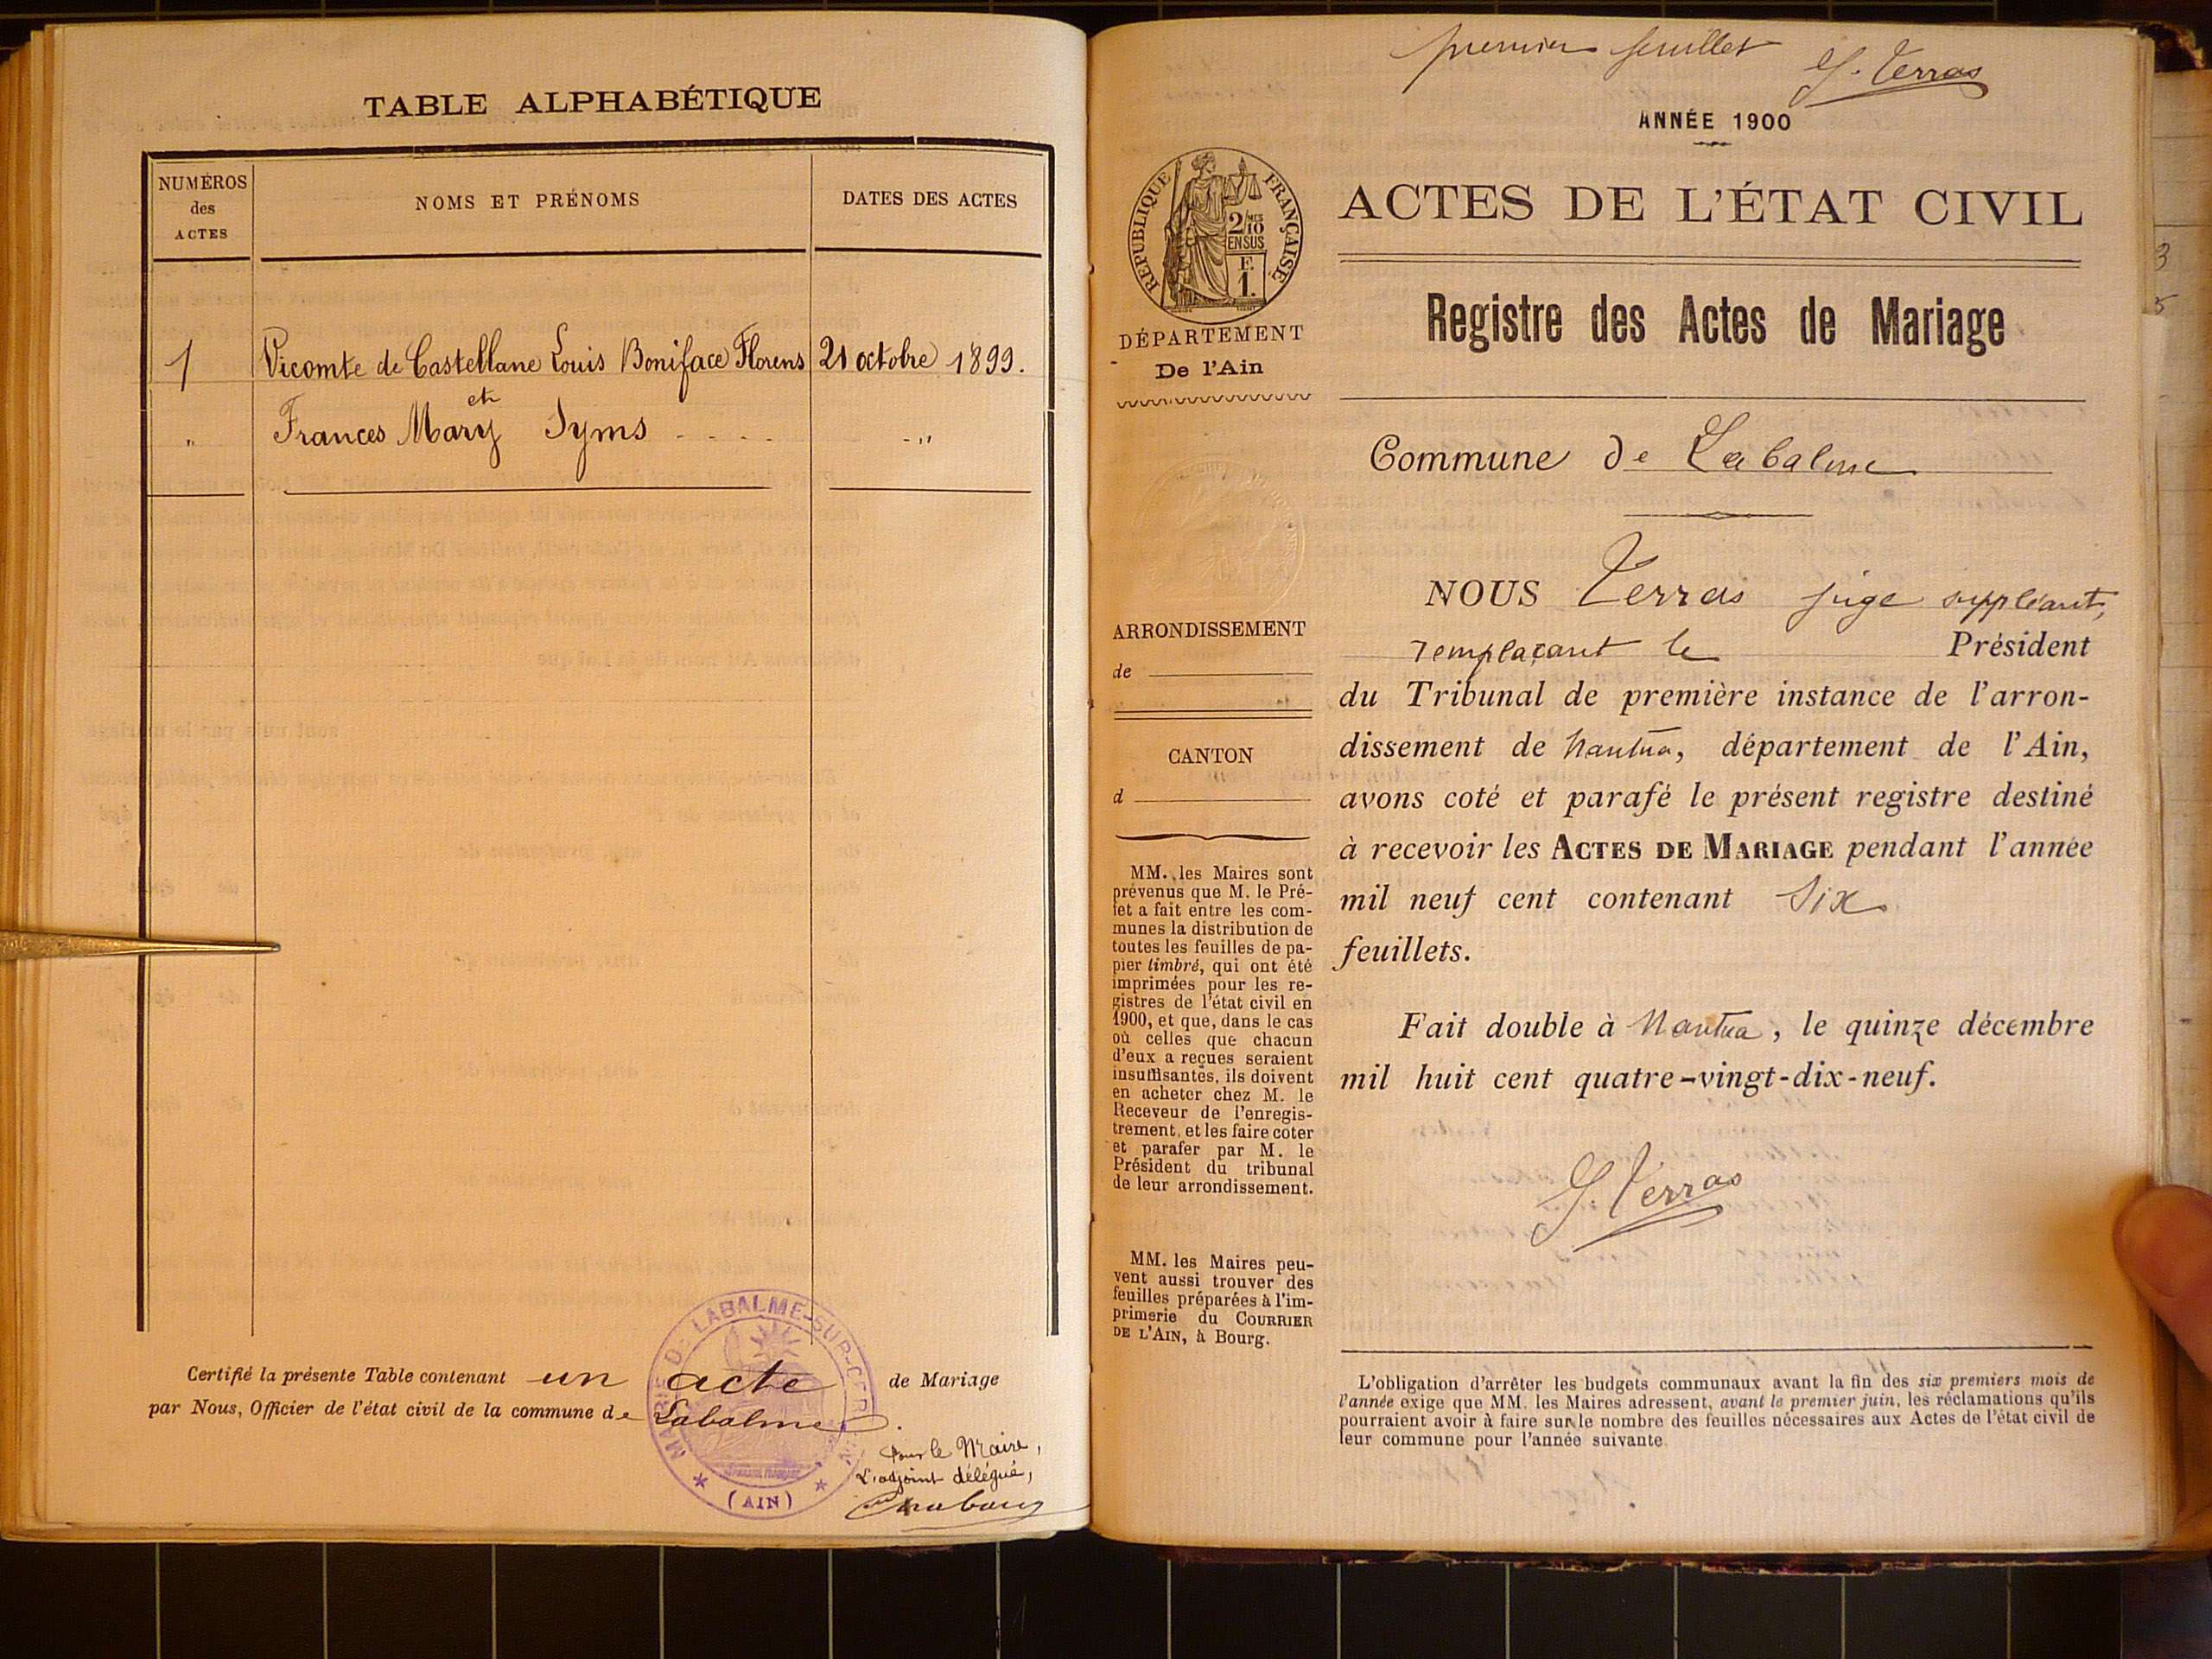 TABLE ALPHABÉTIQUE
NUMÉROS
des
ACTES
NOMS ET PRÉNOMS
DATES DES ACTES
1 Vicomte de Castellane Louis Boniface Florens 21 octobre 1899.
et
" Frances Mary Syms - - - - - "
Certifié la présente Table contenant un acte de Mariage
par Nous, Officier de l'état civil de la commune de Labalme.
MAIRIE DE LABALME-SUR-CERDON
(AIN)
Pour le Maire,
L'adjoint délégué,
premier feuillet G. Verras
ANNÉE 1900
RÉPUBLIQUE FRANÇAISE
2/10
EN SUS
F.
1.
DÉPARTEMENT
De l'Ain
ARRONDISSEMENT
de
CANTON
d
MM. les Maires sont
prévenus que M. le Pré-
fet a fait entre les com-
munes la distribution de
toutes les feuilles de pa-
pier timbré, qui ont été
imprimées pour les re-
gistres de l'état civil en
1900, et que, dans le cas
où celles que chacun
d'eux a reçues seraient
insuffisantes, ils doivent
en acheter chez M. le
Receveur de l'enregis-
trement, et les faire coter
et parafer par M. le
Président du tribunal
de leur arrondissement.
MM. les Maires peu-
vent aussi trouver des
feuilles préparées à l'im-
primerie du COURRIER
DE L'AIN, à Bourg.
ACTES DE L'ÉTAT CIVIL
Registre des Actes de Mariage
Commune de Labalme
NOUS Verras juge suppléant,
remplaçant le Président
du Tribunal de première instance de l'arron-
dissement de Nantua, département de l'Ain,
avons coté et parafé le présent registre destiné
à recevoir les ACTES DE MARIAGE pendant l'année
mil neuf cent contenant six
feuillets.
Fait double à Nantua, le quinze décembre
mil huit cent quatre-vingt-dix-neuf.
G. Verras
L'obligation d'arrêter les budgets communaux avant la fin des six premiers mois de
l'année exige que MM. les Maires adressent, avant le premier juin, les réclamations qu'ils
pourraient avoir à faire sur le nombre des feuilles nécessaires aux Actes de l'état civil de
leur commune pour l'année suivante.
3
5